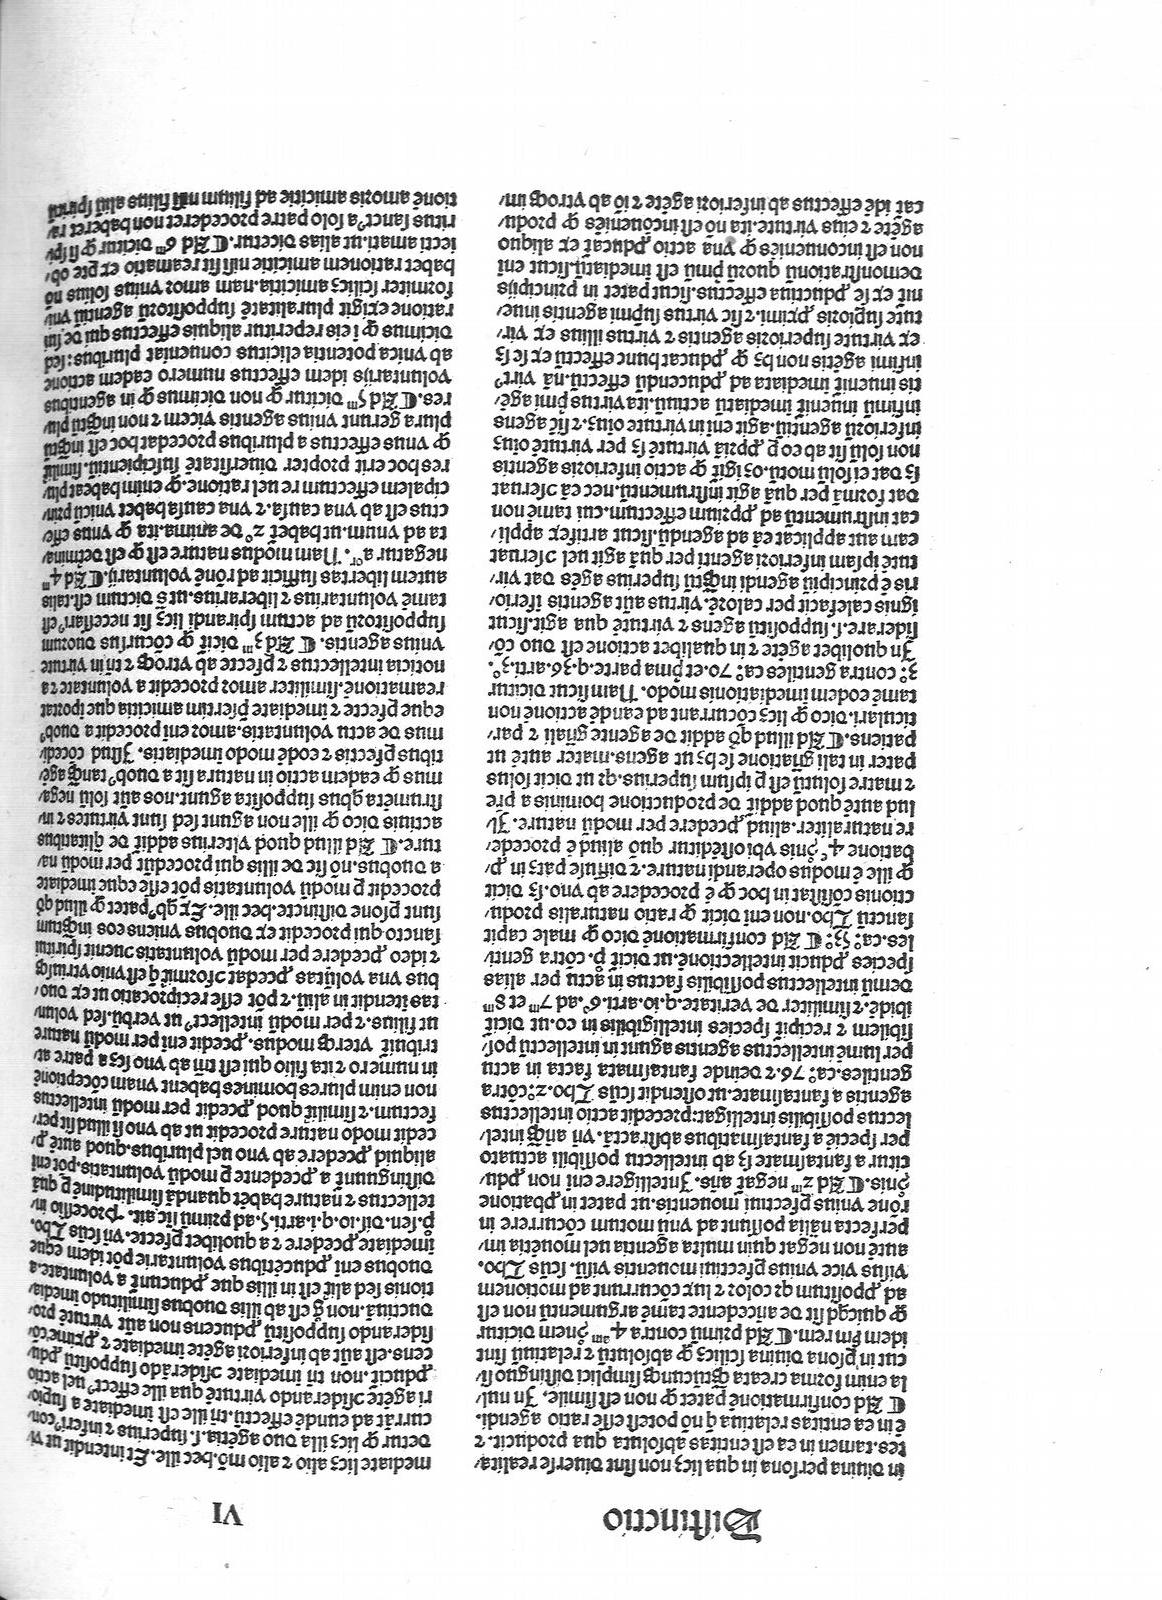 Distinctio
VI
in diuina persona in qua licꝫ non sint diuerse realita/
tes.tamen in ea est entitas absoluta qua producit.⁊
ē in ea entitas relatiua q̄ nō potest esse ratio agendi.
¶ Ad confirmationē patet ꝙ non est simile. In nul/
la enim forma creata simplici distinguo si/
cut in p̱sona diuina scilicꝫ ꝙ absolutū ⁊ relatiuū sint
idem ꝼm rem. ¶ Ad primū contra 4ᵃᵐ ꝯ̄nem dicitur
ꝙ quicq̄d sit de antecedente tamē argumentū non est
ad ꝓpositum qꝛ color ⁊ lux cōcurrunt ad motionem
visus vice vnius ꝑfectini mouentis visū. scūs Tho.
autē non negat quin multa agentia uel mouētia im/
perfecta talia possunt ad vnū motum cōcurrere in
rōne vnius ꝑfectini mouentis.ut patet in ꝓbatione
ꝯ̄nis. ¶ Ad 2ᵐ negat̄ ans. Intelligere eni non ꝓdu/
citur a fantasmate sꝫ ab intellectu possibili actuato
per speciē a fantasmatibus abstractā. vn̄ intel/
lectus possibilis intelligat:precedit actio intellectus
agentis a fantasmate.ut ostendit scūs Tho.2° cōtra
gentiles.ca° 76.⁊ deinde fantasmata facta in actu
per lumē intellectus agentis agunt in intellectū pos/
sibilem ⁊ recipit species intelligibilis in eo.ut dicit
ibidē.⁊ similiter de veritate.q.10.arti.6°.ad 7ᵐ et 8ᵐ
demū intellectus possibilis factus in actu per alias
species ꝓducit intellectionē.ut dicit p° cōtra genti/
les.ca° 53° ¶ Ad confirmationē dico ꝙ male capit
sanctū Tho.non eni dicit ꝙ ratio naturalis produ/
ctionis cōsistat in hoc ꝙ ē procedere ab vno.sꝫ dicit
ꝙ ille ē modus operandi nature.⁊ diffuse patꝫ in ꝓ/
batione 4ᵉ ꝯ̄nis vbi ostēditur quō aliud ē procede/
re naturaliter.aliud ꝓcedere per modū nature. Il/
lud autē quod addit̄ de productione hominis a p̄re
⁊ matre solutū est ꝑ ipsum superius.qꝛ ut dicit solus
pater in tali gn̄atione se hꝫ ut agens.mater autē ut
patiens. ¶ Ad illud qd̄ addit̄ de agente gn̄ali ⁊ par/
ticulari.dico ꝙ licꝫ cōcurrant ad eandē actionē non
tamē eodem imediationis modo. Nam sicut dicitur
3° contra gentiles ca° 70.et pma parte.q.36.arti.3°.
In quolibet agēte ⁊ in qualibet actione est duo cō/
siderare.s. suppositū agens ⁊ virtutē qua agit.sicut
ignis calefacit per calorē.virtus aūt agentis iferio/
ris ē principiū agendi superius agēs dat vir/
tutē ipsam inferiori agenti per quā agit uel ꝯseruat
eam aut applicat ea ad agendū.sicut artifex appli/
cat instrumentū ad ꝓprium effectum.cui tamē non
dat formā per quā agit instrumentū.nec eā ꝯseruat
sꝫ dat ei solū motū.oꝫ igit̄ ꝙ actio inferioris agentis
non solū sit ab eo ꝑ ꝓpriā virtutē sꝫ per virtutē oīuꝫ
superiorū agentiū.agit eni in virtute oīuꝫ.⁊ sic agens
infimū inuenit̄ imediatū actiuū.ita virtus pmi agē/
tis inuenit̄ imediata ad ꝓducendū effectū.nā virtꝰ
infimi agētis non hꝫ ꝙ ꝓducat hunc effectū ex se sꝫ
ex virtute superioris agentis ⁊ virtus illius ex vir/
tute superioris primi.⁊ sic virtus supmi agentis inue/
nit̄ ex se ꝓductiua effectus.sicut patet in principijs
demonstrationū quorū pmū est imediatū.sicut eni
non est inconueniens ꝙ vna actio ꝓducat̄ ex aliquo
agēte ⁊ eius virtute.ita nō est incōueniēs ꝙ produ/
cat̄ idē effectus ab inferiori agēte ⁊ iō ab vtroꝗ im/
mediate licꝫ alio ⁊ alio mō.hec ille. Et intendit ut vi/
detur ꝙ licꝫ illa duo agētia.s. superius ⁊ inferiꝰ con/
currāt ad eundē effectū.tn̄ ille est imediate a supio/
ri agēte ꝯsiderando virtutē qua ille effectꝰ uel actio
ꝓducit̄.non tn̄ imediate ꝯsiderādo suppositū ꝓdu/
cens.est aūt ab inferiori agēte imediate ⁊ prime cō/
siderando suppositū ꝓducens non aūt virtutē pro/
ductiuā.non ḡ est ab illis duobus similitudo imedia/
tionis sed alit̄ est in illis que ꝓducunt a voluntate.a
duobus eni ꝓducētibus voluntarie pōt idem eque
imediate ꝓcedere ⁊ a quolibet ꝑfecte. vn̄ scūs Tho.
p.sen.dis.10.q.1.arti.5.ad primū sic ait. Processio in/
tellectus ⁊ nature habēt quandā similitudinē ꝑ quā
distinguunt̄ a ꝓcedente ꝑ modū voluntatis.pōt eni
aliquid ꝓcedere ab vno uel pluribus.quod autē ꝓ/
cedit modo nature procedit ut ab vno si illud sit per/
fectum.⁊ similit̄ quod ꝓcedit per modū intellectus
non enim plures homines habent vnam cōceptionē
in numero ⁊ ita filio qui est tm̄ ab vno scꝫ a patre at/
tribuit̄ vterꝗ modus. ꝓcedit eni per modū nature
ut filius.⁊ per modū intellectꝰ ut verbū.sed volun/
tas tendit in aliū.⁊ pōt esse reciprocatio ut ex duo/
bus vna volūtas ꝓcedat ꝯformit̄ q̄ est vnio vtriusꝗ
⁊ ideo ꝓcedere per modū voluntatis ꝯuenit spiritui
sancto qui procedit ex duobus vniens eos
sunt ꝑsone distincte.hec ille. Ex qb° patet ꝙ illud qd̄
procedit ꝑ modū voluntatis pōt esse eque imediate
a duobus.nō sic de illis qui procedūt per modū na/
ture. ¶ Ad illud quod vlterius addit̄ de qlitatibus
actiuis dico ꝙ ille non agunt sed sunt virtutes ⁊ in/
strumēta qbus supposita agunt.nos aūt solū nega/
mus ꝙ eadem actio in natura sit a duob° age/
tibus ꝑfectis ⁊ eodē modo imediatis. Illud cōcedi/
mus de actu voluntatis.amor eni procedit a duob°
eque ꝑfecte ⁊ imediate ꝑsertim amicitia que iportat
reamationē.similiter amor procedit a voluntate ⁊ a
noticia intellectus ⁊ ꝑfecte ab vtroꝗ ⁊ tn̄ in virtute
vnius agentis. ¶ Ad 3ᵐ dicit̄ ꝙ cōcursus duorum
suppositorū ad actum spirandi licꝫ sit necessariꝰ est
tamē voluntarius ⁊ liberarius.ut s̄ dictum est.talis
autem libertas sufficit ad rōnē voluntarij. ¶ Ad 4ᵐ
negatur aⁿˢ. Nam modus nature est ꝙ est determina/
ta ad vnum.ut habet̄ 2° de anima.ita ꝙ vnus effe/
ctus est ab vna causa.⁊ vna causa habet vnicū prin/
cipalem effectum re uel ratione.ꝙ enim habeat plu/
res hoc erit propter diuersitatē suscipientiū. similit̄
ꝙ vnus effectus a pluribus procedat hoc est
plura gerunt vnius agentis vicem ⁊ non plu/
res. ¶ Ad 5ᵐ dicitur ꝙ non dicimus ꝙ in agentibus
voluntarijs idem effectus numero eadem actione
ab vnica potentia elicitus conueniat pluribus:sed
dicimus ꝙ i eis reperitur aliquis effectus qui de sui
ratione exigit pluralitatē suppositorū agentiū vni/
formiter scilicꝫ amicitia.nam amor vnius solius nō
habet rationem amicitie nisi sit reamatio ex pte ob/
iecti amati.ut alias dicetur. ¶ Ad 6ᵐ dicitur ꝙ si spi/
ritus sanctꝰ a solo patre procederet non haberet ra/
tionē amoris amicitie ad filium nisi filius aliꝰ spirau